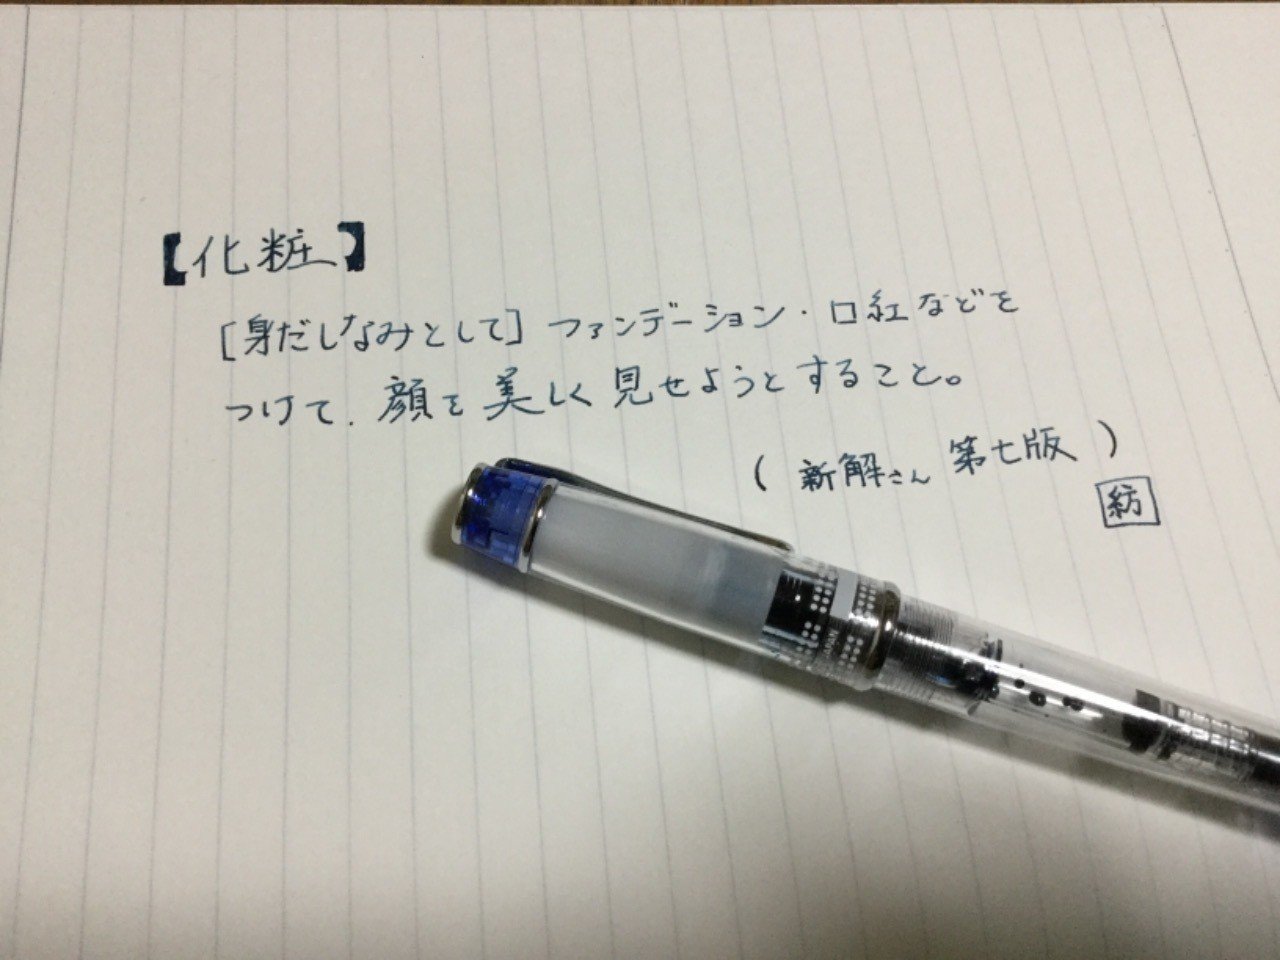 【化粧】
[身だしなみとして] ファンデーション・口紅などを
つけて、顔を美しく見せようとすること。
(新解さん 第七版)
紡
JAPAN